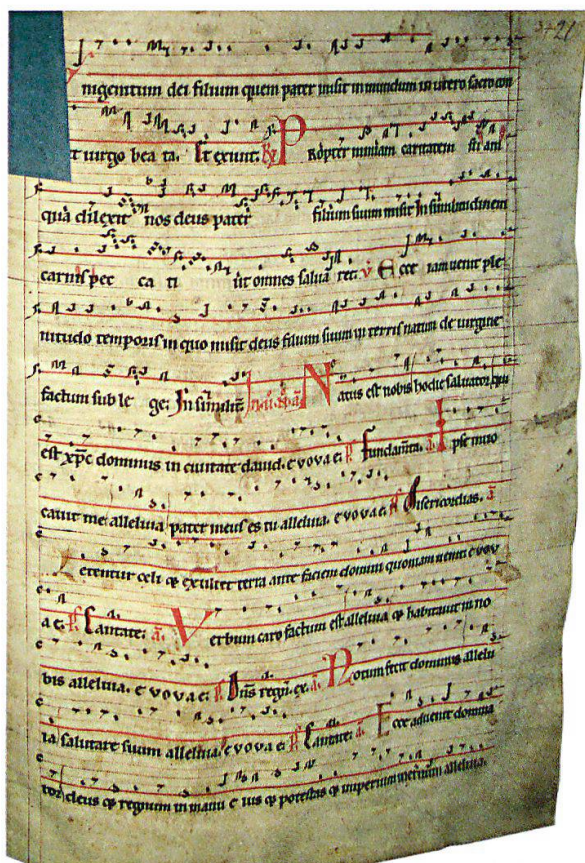 nigenitum dei filium quem pater misit in mundum in utero sacro con
t virgo bea ta. Et exivit. R Propter nimiam caritatem suā
quā dilexit nos deus pater filium suum misit In similitudinem
carnis pec ca ti ut omnes salva ret. V Ecce iam venit ple
nitudo temporis in quo misit deus filium suum in terris natum de virgine
factum sub le ge. In similit. Natus est nobis hodie salvator qui
est xpc dominus in civitate david. e vova e. ps fundamta. a Ipse invo
cavit me alleluia pater meus es tu alleluia. e vova e. ps Misericordias. a
Letentur celi et exultet terra ante faciem domini quoniam venit e vov
a e. ps Cantate. a Verbum caro factum est alleluia et habitavit in no
bis alleluia. e vova e. ps Dns regn. ex. a Notum fecit dominus allelu
ia salutare suum alleluia. e vova e. ps Cantate. a Ecce advenit domina
tor deus et regnum in manu e ius et potestas et imperium alleluia.